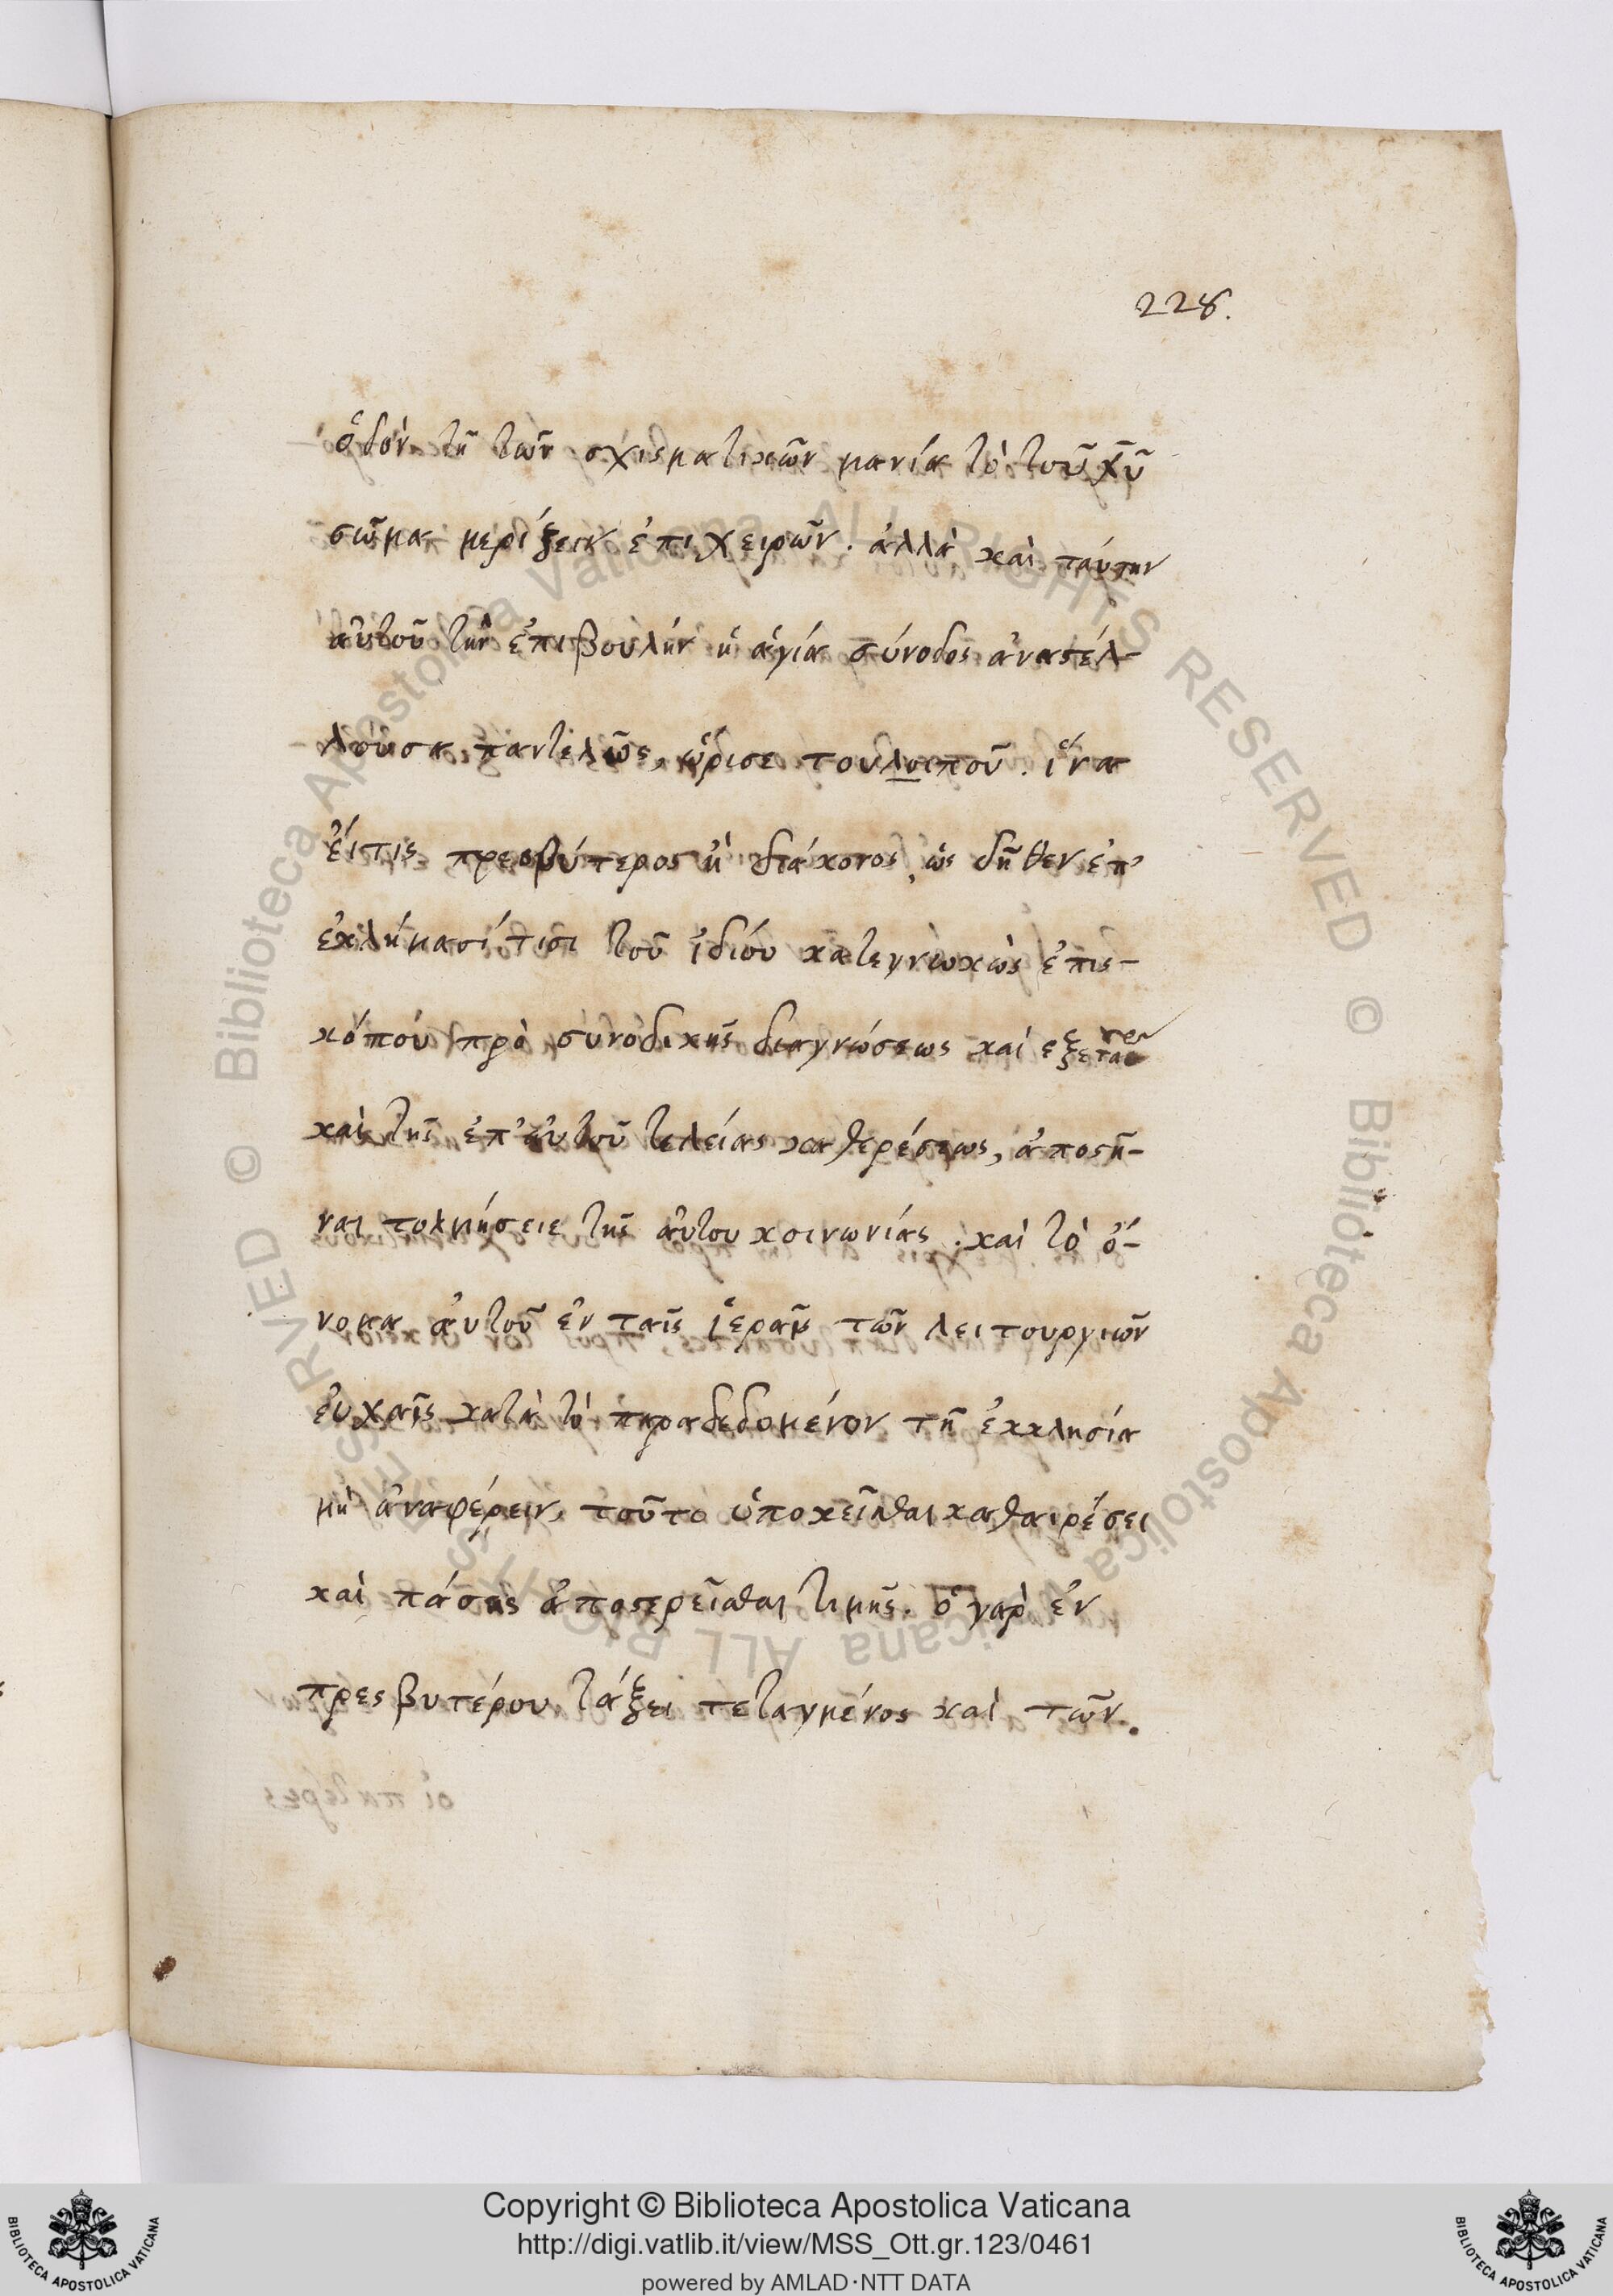 228.
ὁδὸν τῆ τῶν σχισματικῶν μανία τὸ τοῦ χῦ
σῶμα μερίζειν ἐπιχειρῶν. ἀλλὰ καὶ ταύτην
αὐτοῦ τὴν ἐπιβουλὴν ἡ ἁγία σύνοδος ἀναστέλ-
λουσα παντελῶς, ὥρισε τουλοιποῦ. ἵνα
εἴτις πρεσβύτερος ἢ διάκονος, ὡς δῆθεν ἐπ'
ἐκλήμασί τισι τοῦ ἰδίου κατεγνωκὼς ἐπισ-
κόπου πρὸ συνοδικῆς διαγνώσεως καὶ
καὶ τῆς ἐπ' αὐτοῦ τελείας καθερέσεως, ἀποστῆ-
ναι τολμήσειε τῆς αὐτου κοινωνίας. καὶ τὸ ὄ-
νομα αὐτοῦ ἐν ταῖς ἱεραῖς τῶν λειτουργιῶν
εὐχαῖς κατὰ τὸ παραδεδομένον τῆ ἐκκλησία
μὴ ἀναφέρειν, τοῦτο ὑποκεῖσθαι καθαιρέσει
καὶ πάσης ἀποστερεῖσθαι τιμῆς. ὁ γαρ ἐν
πρεσβυτέρου τάξει τεταγμένος καὶ τῶν.
Copyright © Biblioteca Apostolica Vaticana
http://digi.vatlib.it/view/MSS_Ott.gr.123/0461
powered by AMLAD·NTT DATA
BIBLIOTECA APOSTOLICA VATICANA
BIBLIOTECA APOSTOLICA VATICANA
© Biblioteca Apostolica Vaticana ALL RIGHTS RESERVED
© Biblioteca Apostolica Vaticana ALL RIGHTS RESERVED